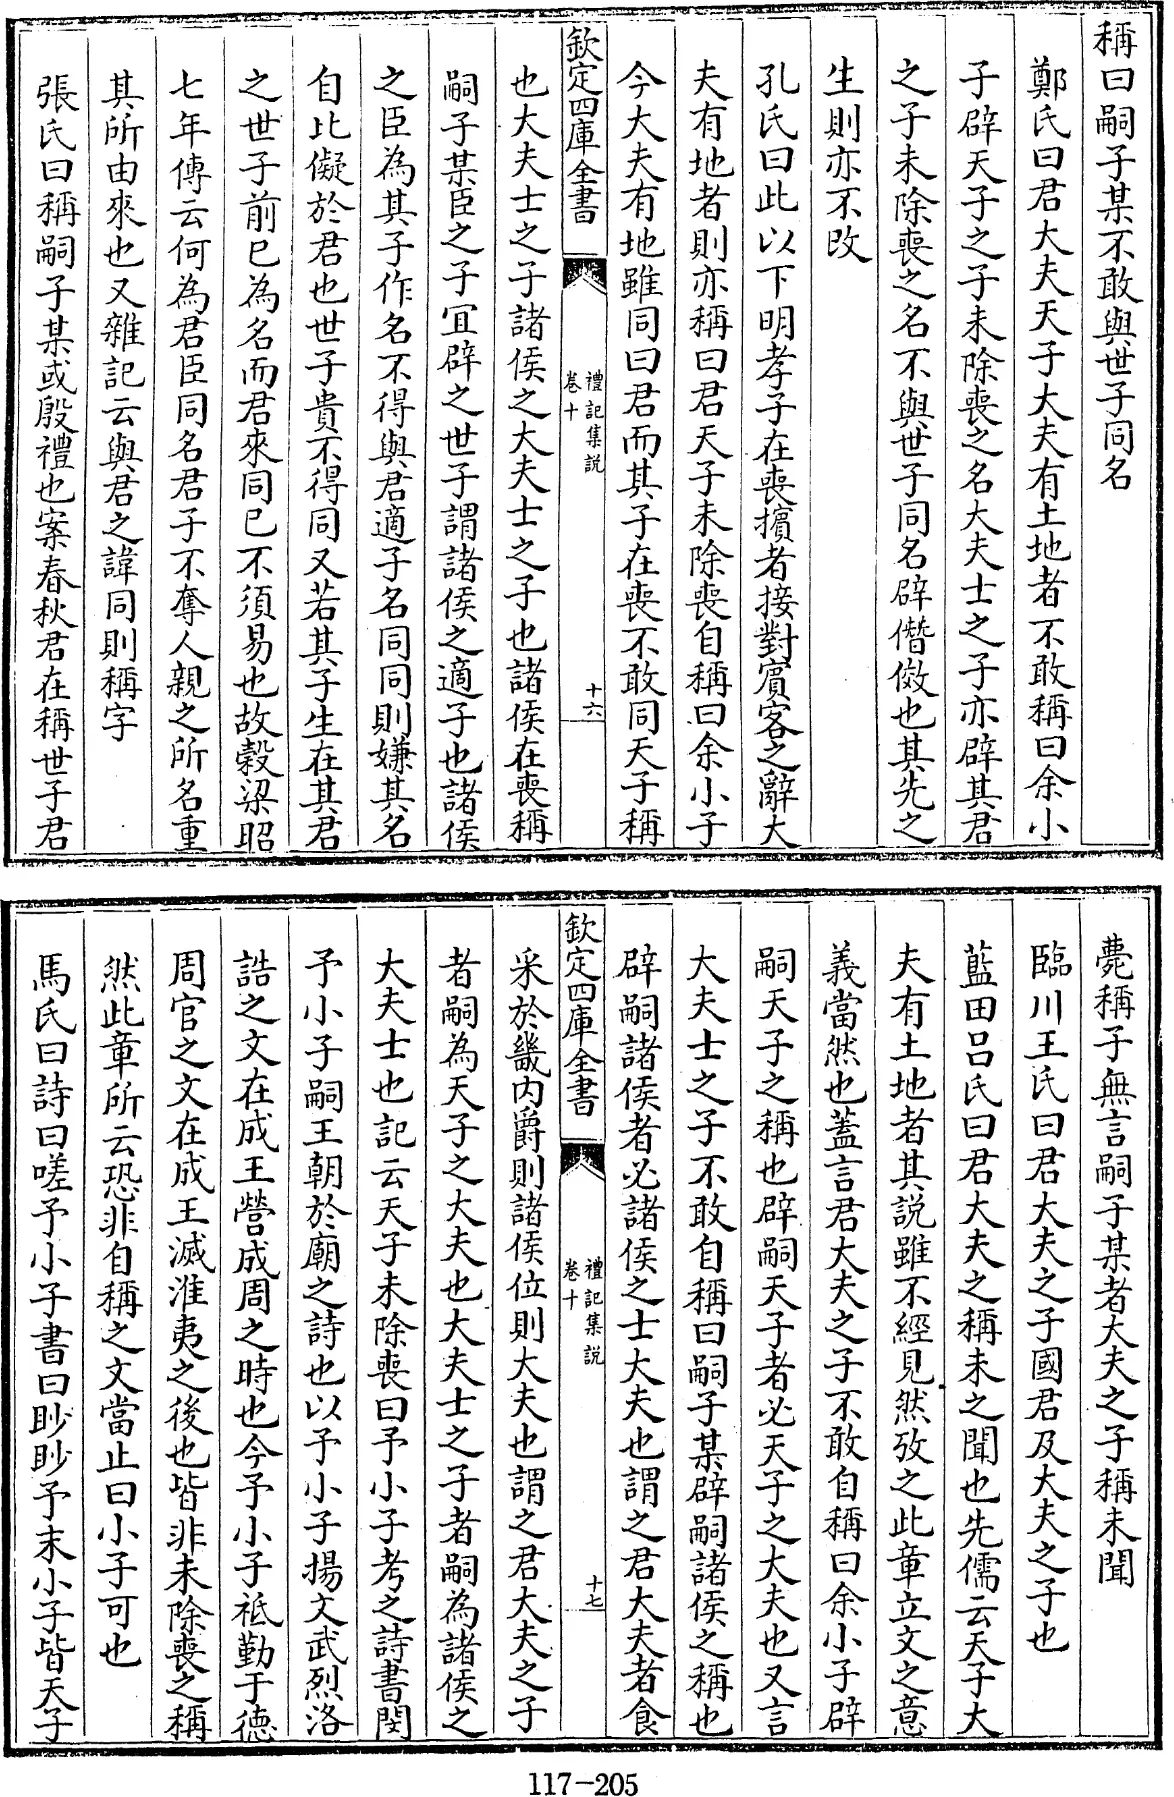 稱曰嗣子某不敢與世子同名
鄭氏曰君大夫天子大夫有土地者不敢稱曰余小
子辟天子之子未除喪之名大夫士之子亦辟其君
之子未除喪之名不與世子同名辟僭傚也其先之
生則亦不改
孔氏曰此以下明孝子在喪擯者接對賓客之辭大
夫有地者則亦稱曰君天子未除喪自稱曰余小子
今大夫有地雖同曰君而其子在喪不敢同天子稱
欽定四庫全書
禮記集說
卷十
十六
也大夫士之子諸侯之大夫士之子也諸侯在喪稱
嗣子某臣之子宜辟之世子謂諸侯之適子也諸侯
之臣為其子作名不得與君適子名同同則嫌其名
自比儗於君也世子貴不得同又若其子生在其君
之世子前已為名而君來同已不須易也故榖梁昭
七年傳云何為君臣同名君子不奪人親之所名重
其所由來也又雜記云與君之諱同則稱字
張氏曰稱嗣子某或殷禮也案春秋君在稱世子君
薨稱子無言嗣子某者大夫之子稱未聞
臨川王氏曰君大夫之子國君及大夫之子也
藍田呂氏曰君大夫之稱未之聞也先儒云天子大
夫有土地者其說雖不經見然攷之此章立文之意
義當然也蓋言君大夫之子不敢自稱曰余小子辟
嗣天子之稱也辟嗣天子者必天子之大夫也又言
大夫士之子不敢自稱曰嗣子某辟嗣諸侯之稱也
辟嗣諸侯者必諸侯之士大夫也謂之君大夫者食
欽定四庫全書
禮記集說
卷十
十七
采於畿内爵則諸侯位則大夫也謂之君大夫之子
者嗣為天子之大夫也大夫士之子者嗣為諸侯之
大夫士也記云天子未除喪曰予小子考之詩書閔
予小子嗣王朝於廟之詩也以予小子揚文武烈洛
誥之文在成王營成周之時也今予小子祗勤于德
周官之文在成王滅淮夷之後也皆非未除喪之稱
然此章所云恐非自稱之文當止曰小子可也
馬氏曰詩曰嗟予小子書曰眇眇予末小子皆天子
117-205